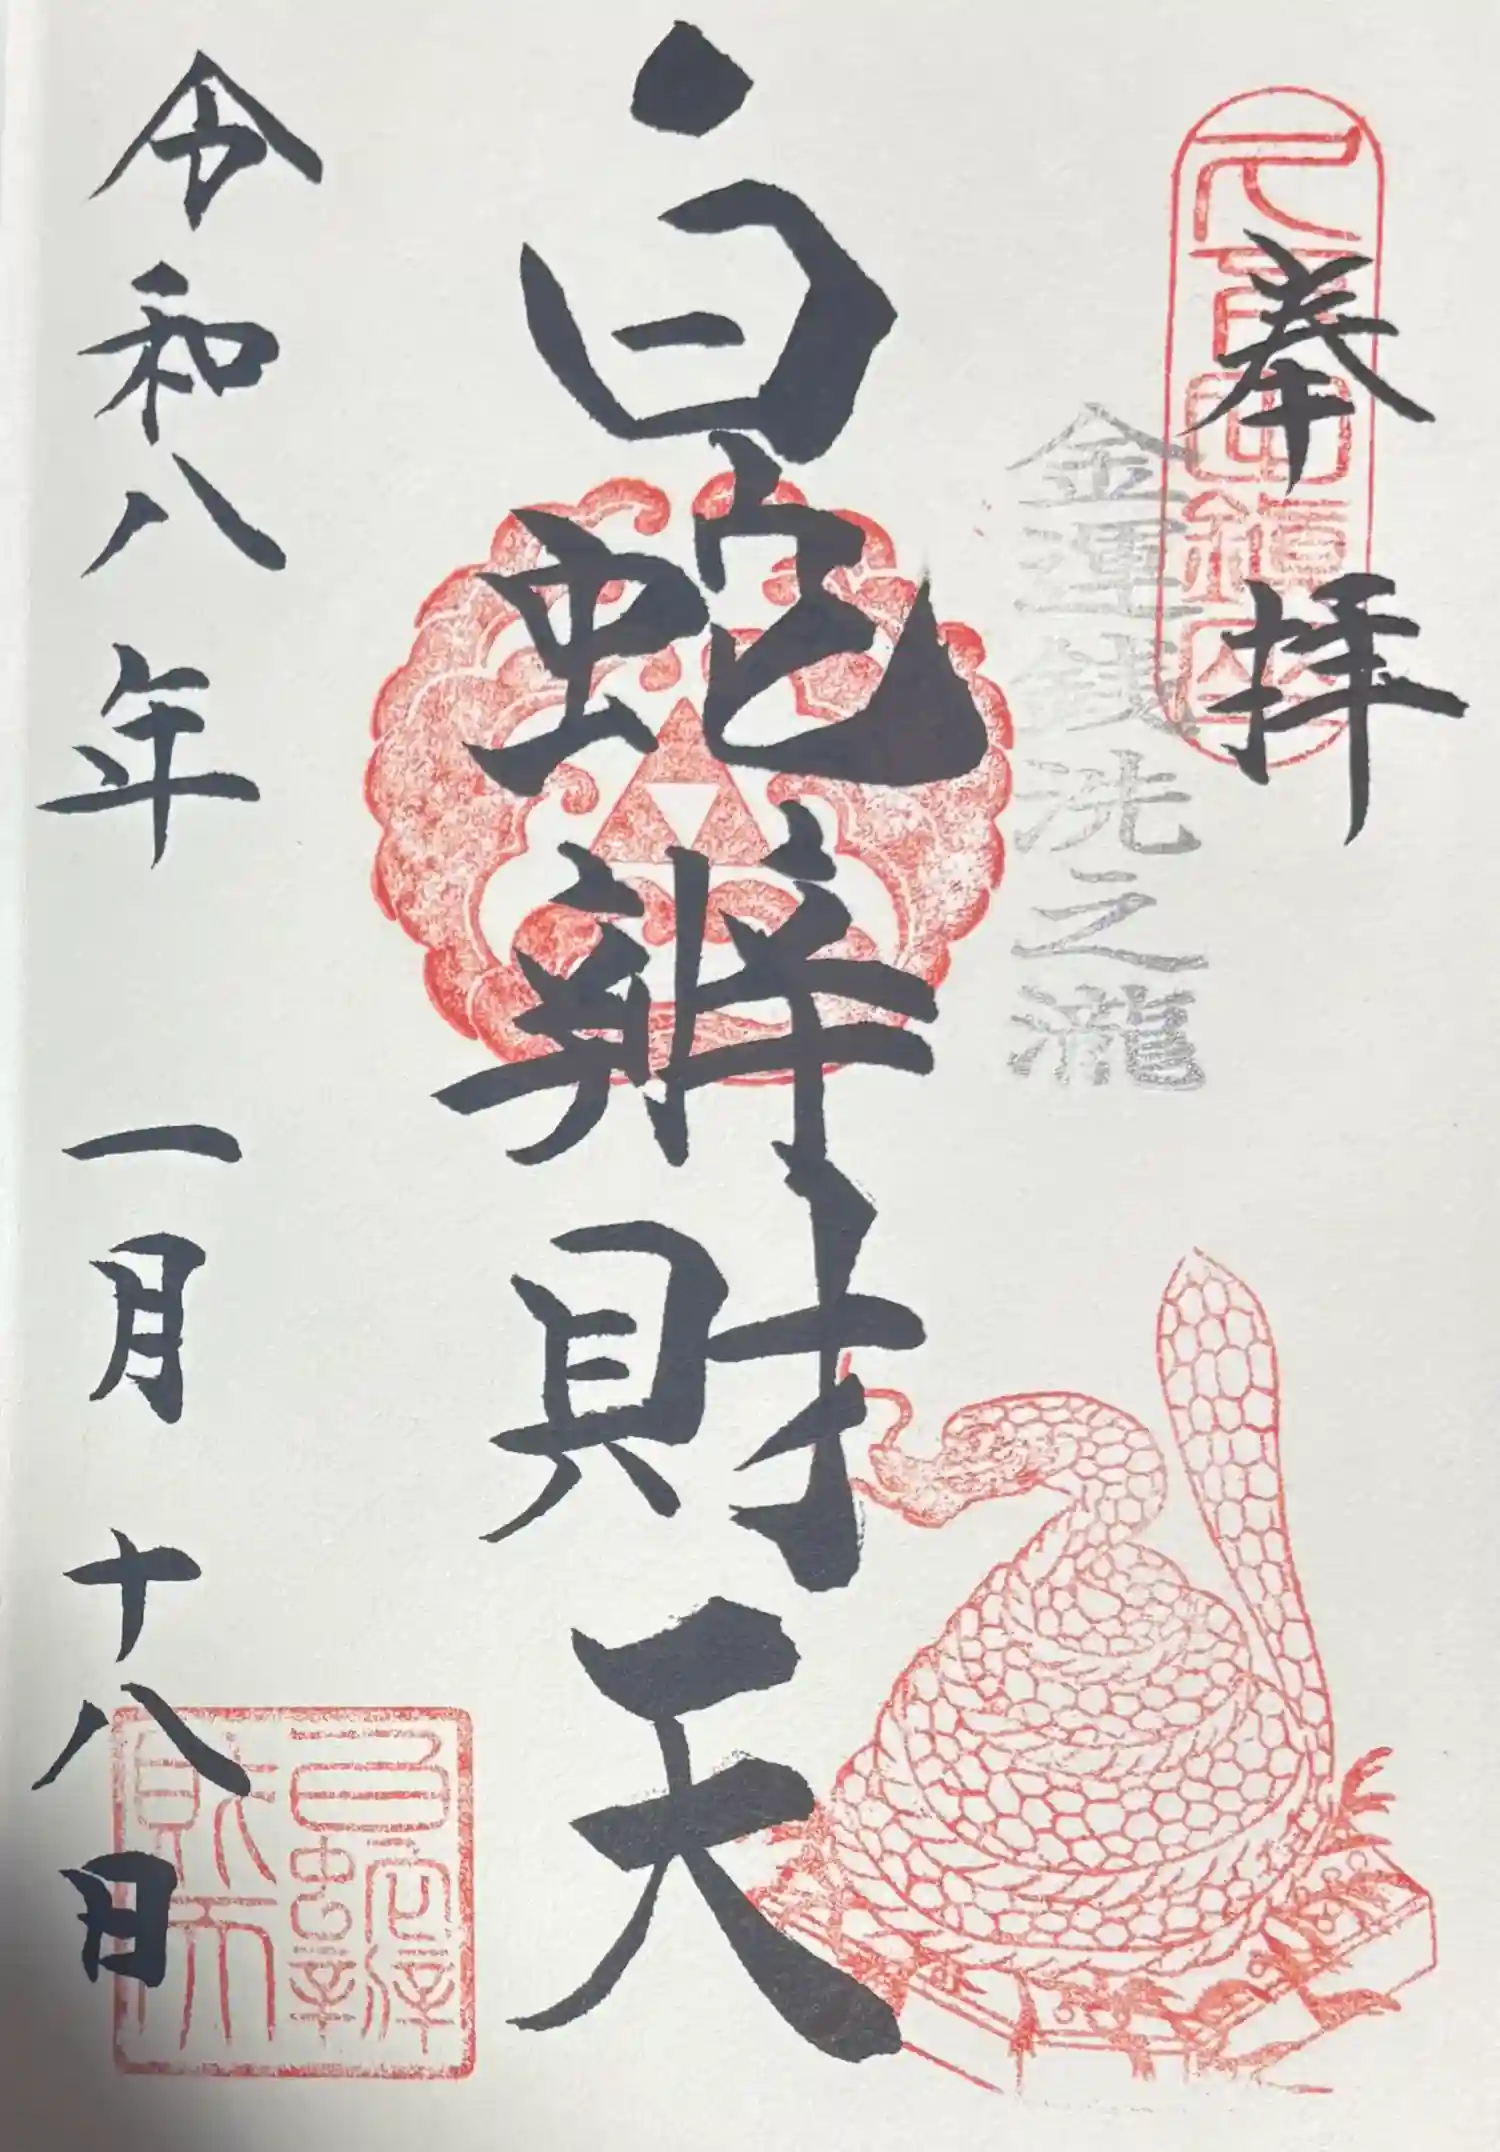 奉拝
金運銭洗之瀧
白蛇辨財天
令和八年 一月十八日
白蛇辨財天